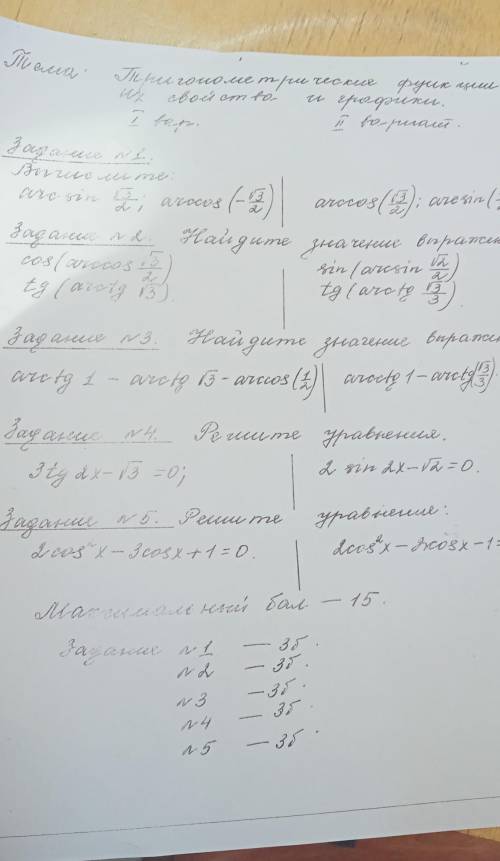 Тема: Тригонометрические функции
их свойства и графики.
I вар. II вариант.
Задание №1.
Вычислите:
arcsin √3/2; arccos(-√3/2) | arccos(√3/2); arcsin(
Задание №2. Найдите значение выражен
cos(arccos √3/2) | sin(arcsin √2/2)
tg(arctg √3). | tg(arctg √3/3).
Задание №3. Найдите значение выражен
arctg 1 - arctg √3 - arccos(1/2) | arcctg 1 - arctg(√3/3).
Задание №4. Решите уравнения.
3tg 2x - √3 = 0; | 2 sin 2x - √2 = 0.
Задание №5. Решите уравнение:
2cos²x - 3cosx + 1 = 0. | 2cos²x - cosx - 1 =
Максимальный бал — 15.
Задание №1 — 3б.
№2 — 3б.
№3 — 3б.
№4 — 3б.
№5 — 3б.